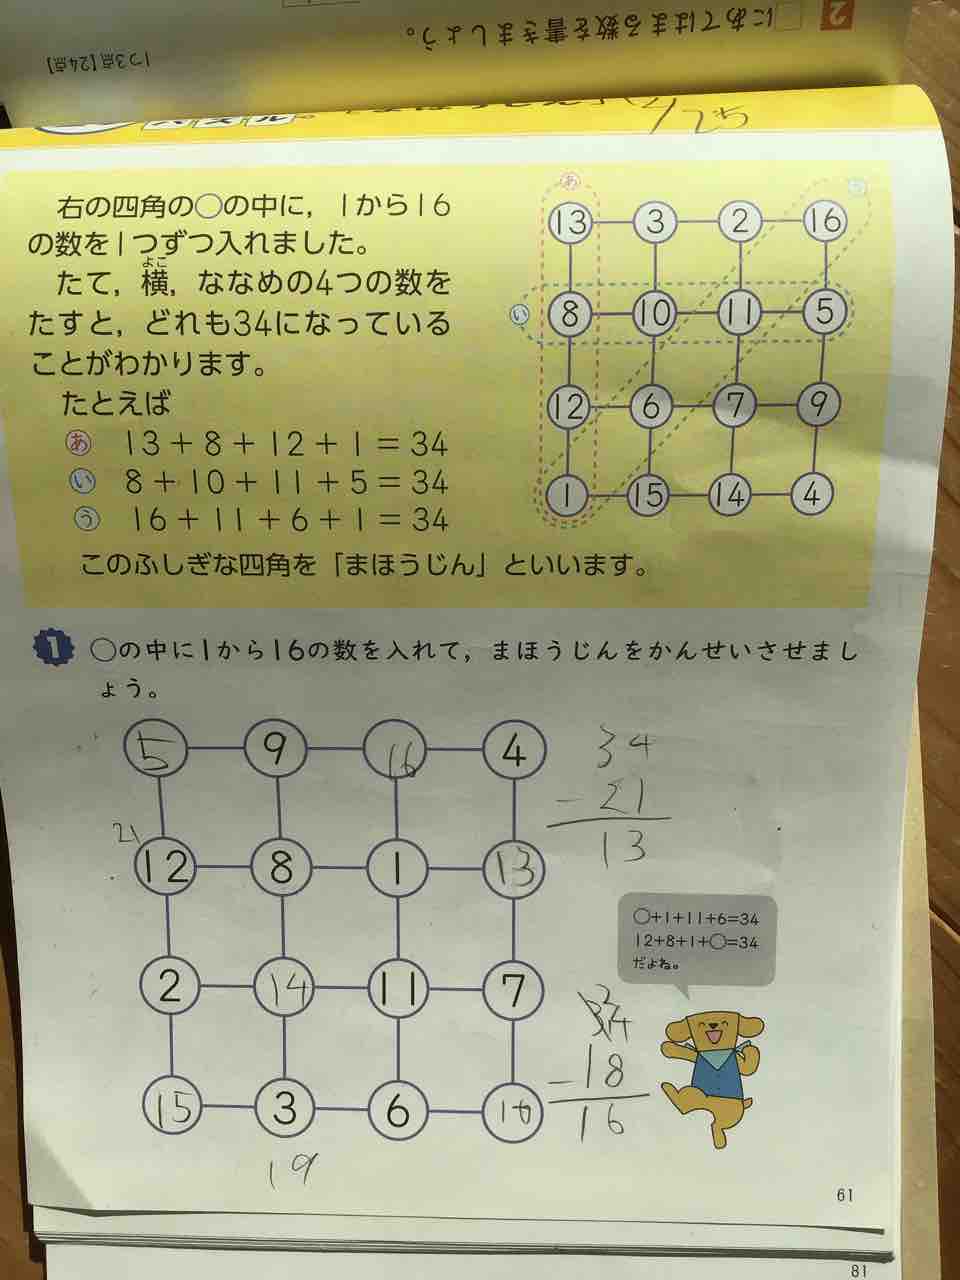 2 □にあてはまる数を書きましょう。
1つ3点【24点】
パズル。
7/25
右の四角の○の中に，1から16
の数を1つずつ入れました。
たて，横，ななめの4つの数を
よこ
たすと，どれも34になっている
ことがわかります。
たとえば
あ 13＋8＋12＋1＝34
い 8＋10＋11＋5＝34
う 16＋11＋6＋1＝34
このふしぎな四角を「まほうじん」といいます。
あ
13 3 2 16
い 8 10 11 5
12 6 7 9
1 15 14 4
1 ○の中に1から16の数を入れて，まほうじんをかんせいさせまし
ょう。
5 9 16 4
21
12 8 1 13
2 14 11 7
15 3 6 10
19
34
－21
13
○+1+11+6=34
12+8+1+○=34
だよね。
34
－18
16
61
81